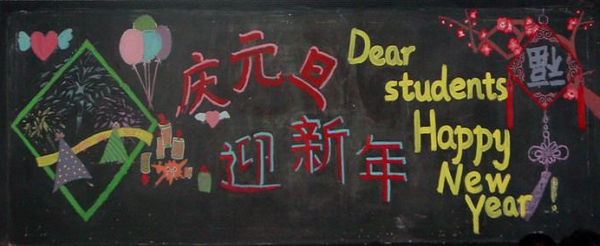 庆元旦
迎新年
Dear
students
Happy
New
Year!
福